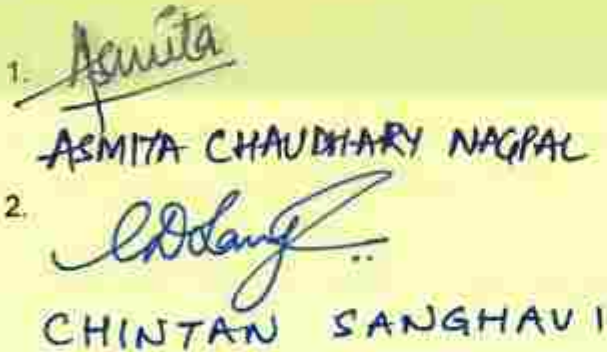 1. Asmita
ASMITA CHAUDHARY NAGPAL
2.
CHINTAN SANGHAVI